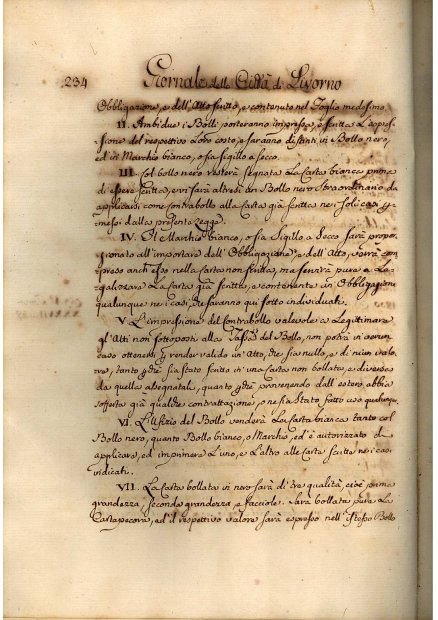 234 Giornale della Città di Livorno
Obbligazione, e dell'Atto scritto, e contenuto nel Foglio medesimo.
II. Ambidue i Bolli porteranno impressa, e scritta l'espres-
sione del respettivo Loro costo, e saranno distinti in Bollo nero,
ed in Marchio bianco, o sia sigillo a secco.
III. Col bollo nero resterà segnata la Carta bianca prima
d'essere scritta, e vi sarà altresì un Bollo nero straordinario da
applicarsi come contrabollo alla Carta già scritta nei soli casi per-
messi dalla presente Legge.
IV. Il Marchio bianco, o sia Sigillo a Secco sarà propor-
zionato all'importare dell'Obbligazione, e dell'Atto, verrà com-
preso anch'esso nella carta non scritta, ma servirà pure a Le-
galizzare la Carta già scritta, e contenente un Obbligazione
qualunque ne i casi, che saranno qui sotto individuati.
V. L'impressione del Contrabollo valevole a Legittimare
gl'Atti non sottoposti alla Tassa del Bollo, non potrà in verun
caso ottenersi per render valido un'Atto, che sia nullo, e di niun valo-
re, tanto perchè sia stato scritto in una carta non bollata, e diversa
da quella assegnatali, quanto perchè provenendo dall'estero abbia
sofferta già qualche contrattazione, o ne sia stato fatto uso qualunque.
VI. L'Ufizio del Bollo venderà la Carta bianca tanto col
Bollo nero, quanto Bollo bianco, o Marchio, ed è autorizzato di
applicare, ed imprimere l'uno, e l'altro alle Carte scritte nei casi
indicati.
VII. La Carta bollata in nero sarà di tre qualità cioè prima
grandezza, seconda grandezza, e facciole. Sarà bollata pure la
Cartapecora, ed il respettivo valore sarà espresso nell'istesso Bollo